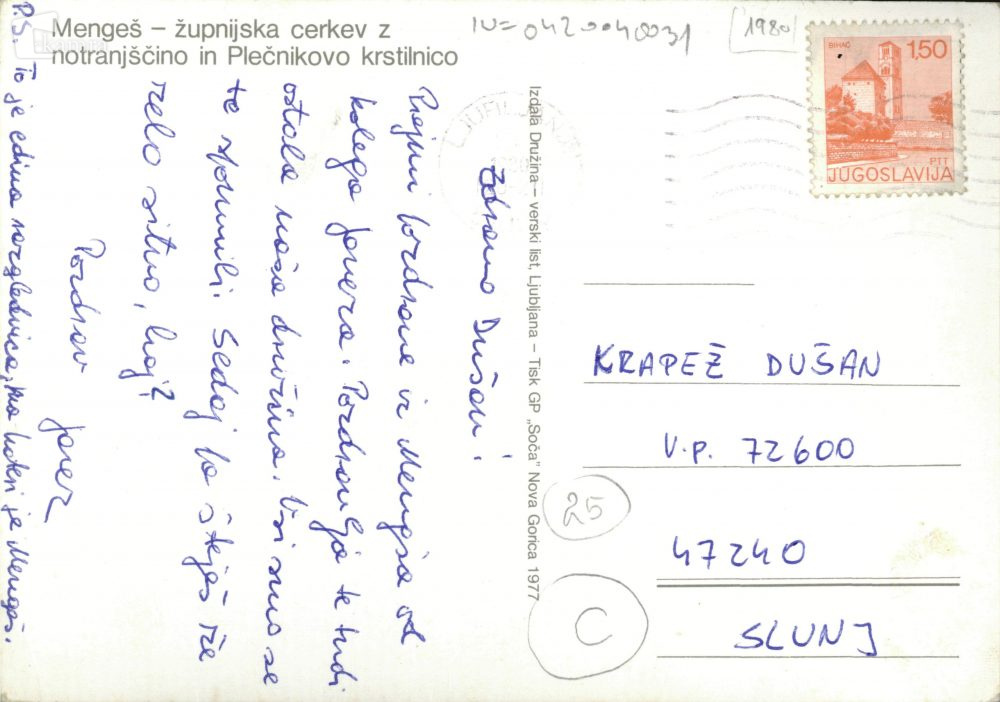 Mengeš – župnijska cerkev z
notranjščino in Plečnikovo krstilnico
IU=0420040031
[1980]
BIHAĆ
1,50
PTT
JUGOSLAVIJA
Izdala Družina – verski list, Ljubljana – Tisk GP „Soča" Nova Gorica 1977
Zdravo Dušan!
Prejmi pozdrave iz Mengša od
kolega Janeza. Pozdravlja te tudi
ostala naša družina. Vsi smo se
te spomnili. Sedaj to šteješ že
zelo sitno, kaj?
Pozdrav
Janez
P.S. To je edina razglednica, na kateri je Mengeš.
KRAPEŽ DUŠAN
V.P. 72600
47240
SLUNJ
25
C